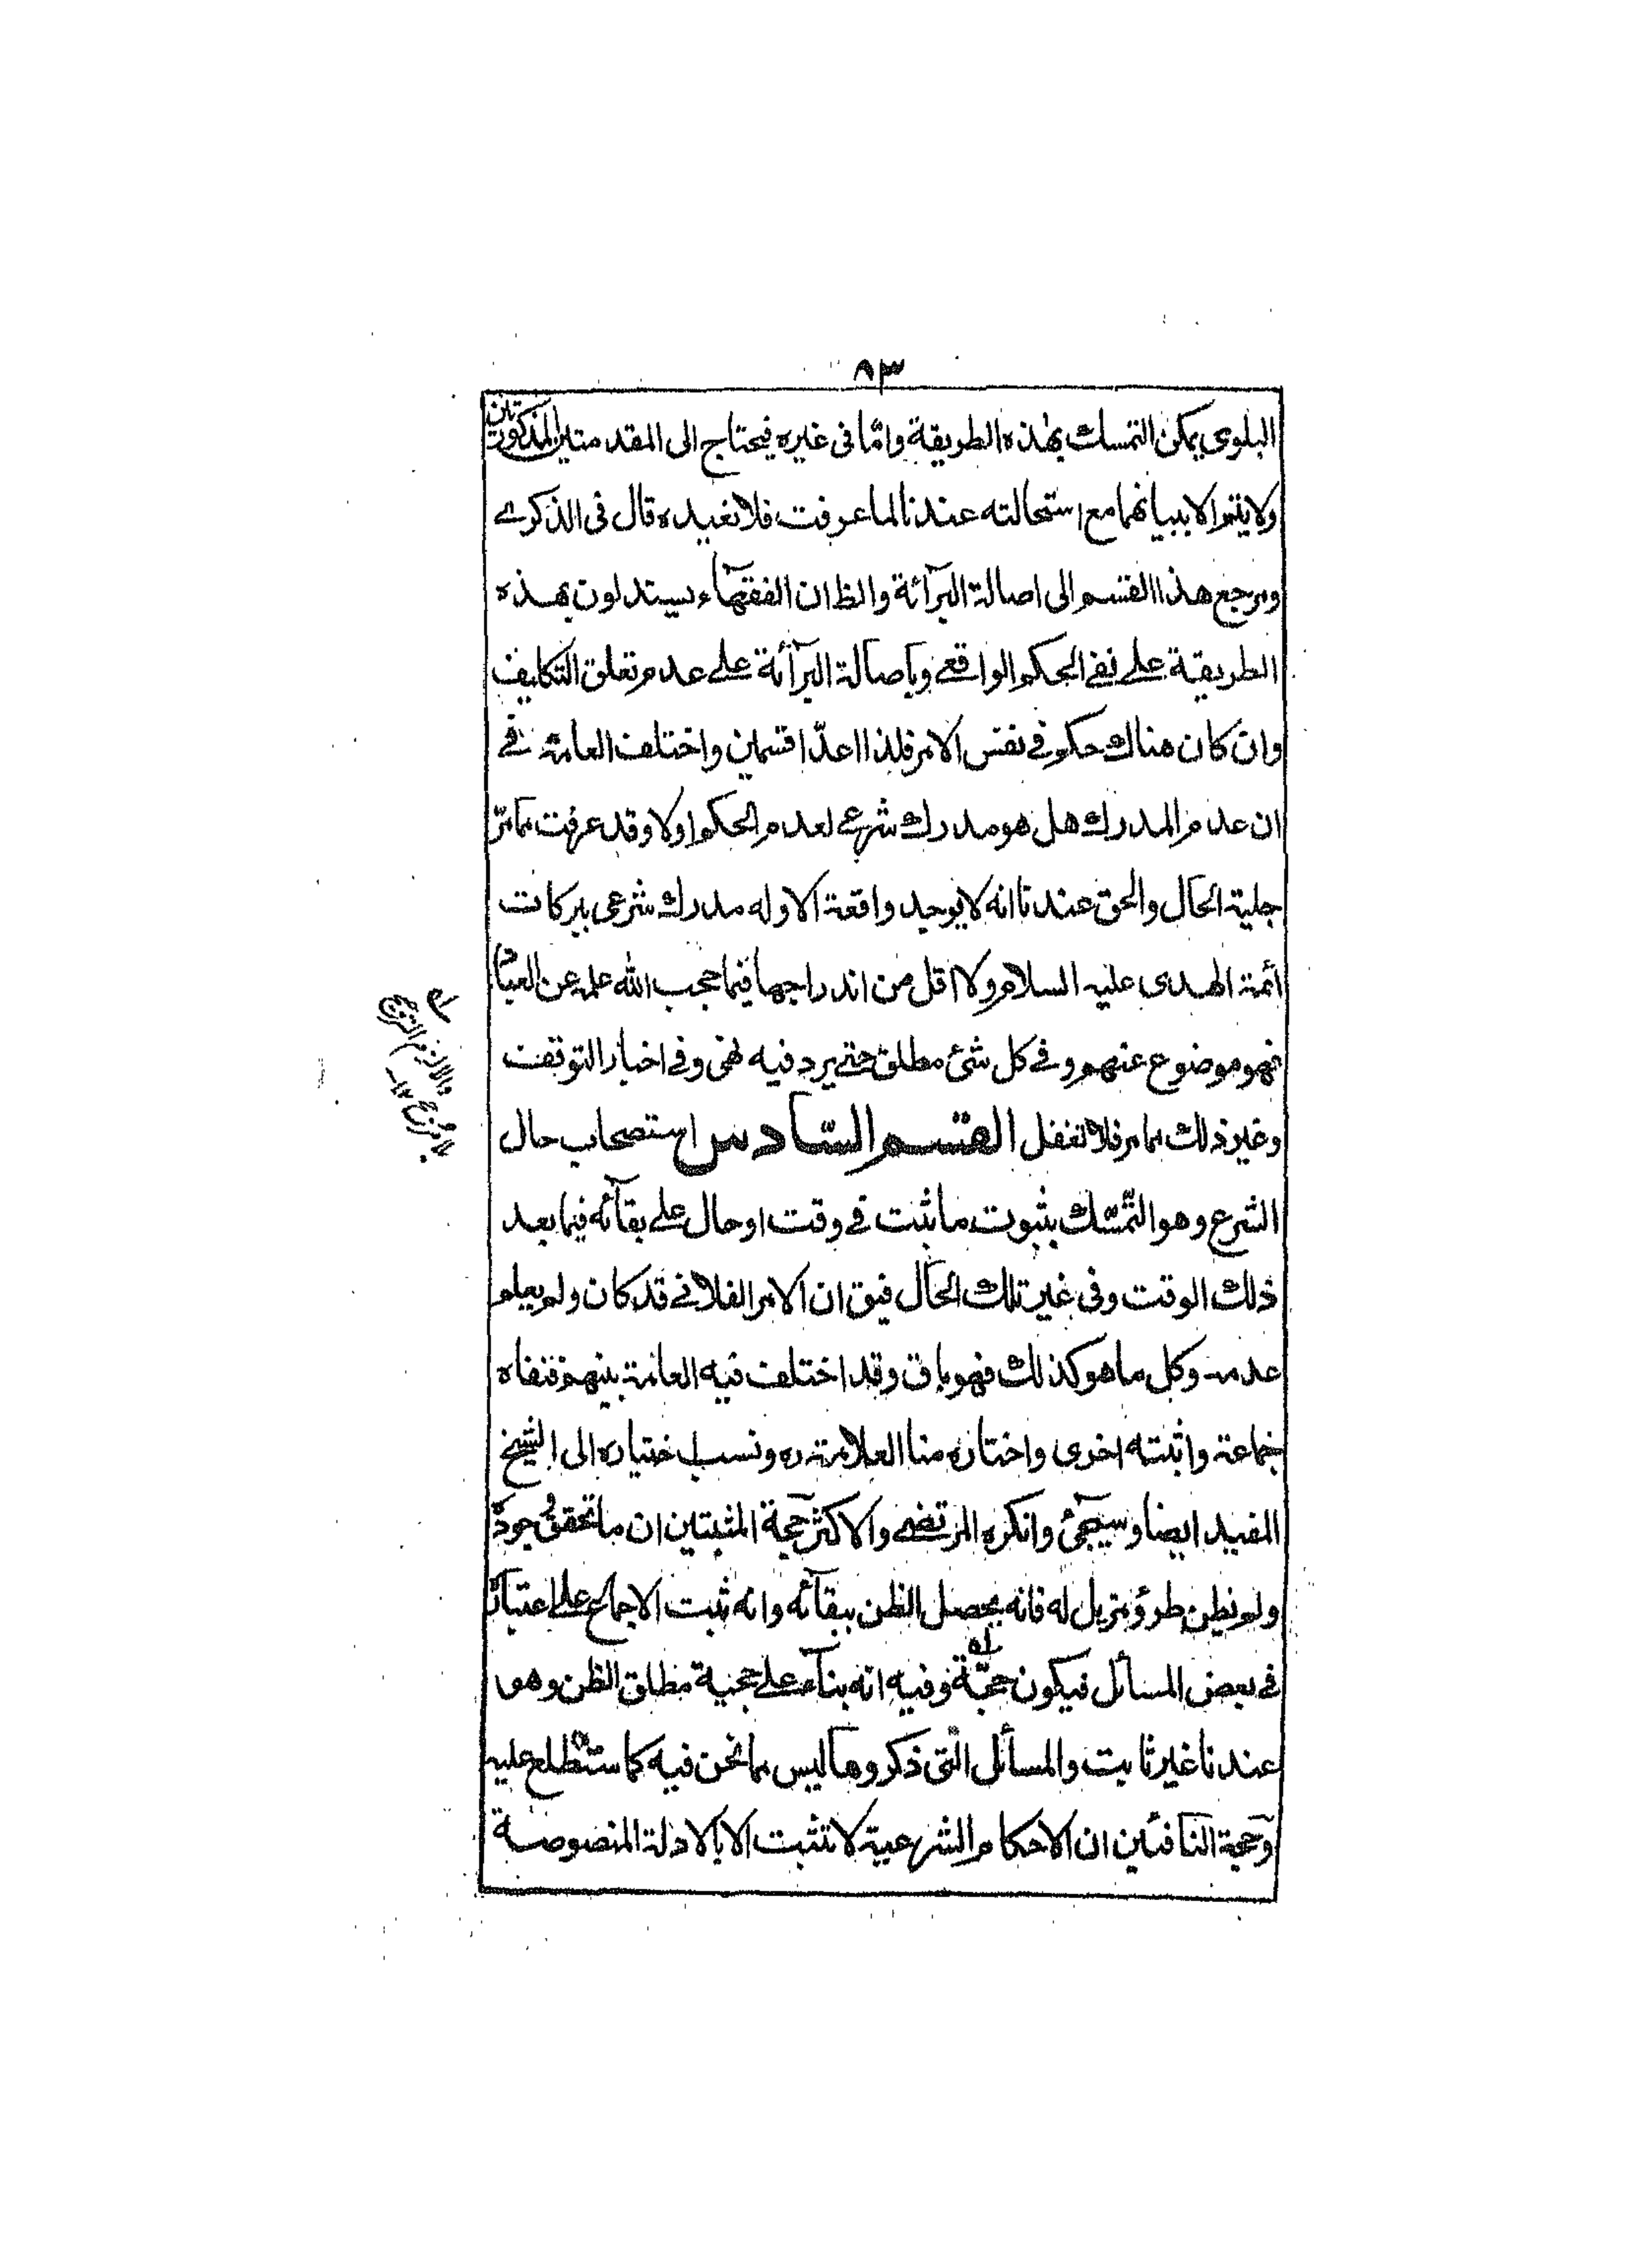 ٨٣
البلوى يمكن التمسك بهذه الطريقة واما فى غيره فيحتاج الى المقدمتين المذكورتين
ولا يتم الا ببيانهما مع استحالته عندنا لما عرفت فلا نعيده قال فى الذكرى
ومرجع هذا القسم الى اصالة البرآئة والظ ان الفقهآء يستدلون بهذه
الطريقة على نفى الحكم الواقعى وبأصالة البرآئة على عدم تعلق التكليف
وان كان هناك حكم فى نفس الامر فلذا اعدّا قسمين واختلف العامة فى
ان عدم المدرك هل هو مدرك شرعى لعدم الحكم اولا وقد عرفت مما مرّ
جلية الحال والحق عندنا انه لا يوجد واقعة الا وله مدرك شرعى ببركات
أئمة الهدى عليه السلام ولا اقل من اندراجها فيما حجب الله علمه عن العباد
فهو موضوع عنهم وفى كل شئ مطلق حتى يرد فيه نهى وفى اخبار التوقف
وغير ذلك مما مر فلا تغفل القسم السّادس استصحاب حال
الشرع وهو التّمسّك بثبوت ما ثبت فى وقت او حال على بقآئه فيما بعد
ذلك الوقت وفى غير تلك الحال فيق ان الامر الفلانى قد كان ولم يعلم
عدمه وكل ما هو كذلك فهو باق وقد اختلف فيه العامة بينهم فنفاه
جماعة واثبته اخرى واختاره منا العلامة ره ونسب اختياره الى الشيخ
المفيد ايضا وسيجئ وانكره المرتضى والاكثر حجة المثبتين ان ما تحقق وجوده
ولم يظن طرؤ مزيل له فانه يحصل الظن ببقآئه وانه ثبت الاجماع على اعتباره
فى بعض المسائل فيكون حجّة وفيه انه بنآء على حجية مطلق الظن وهو
عندنا غير ثابت والمسائل الّتى ذكروها ليس مما نحن فيه كما ستطلع عليه
وحجة النافئين ان الاحكام الشرعية لا تثبت الا بالادلة المنصوصة